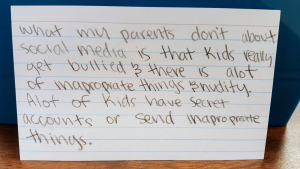 what my parents don't about
social media is that kids really
get bullied & there is alot
of inapropriate things & nudity.
Alot of kids have secret
accounts or send inapropriate
things.